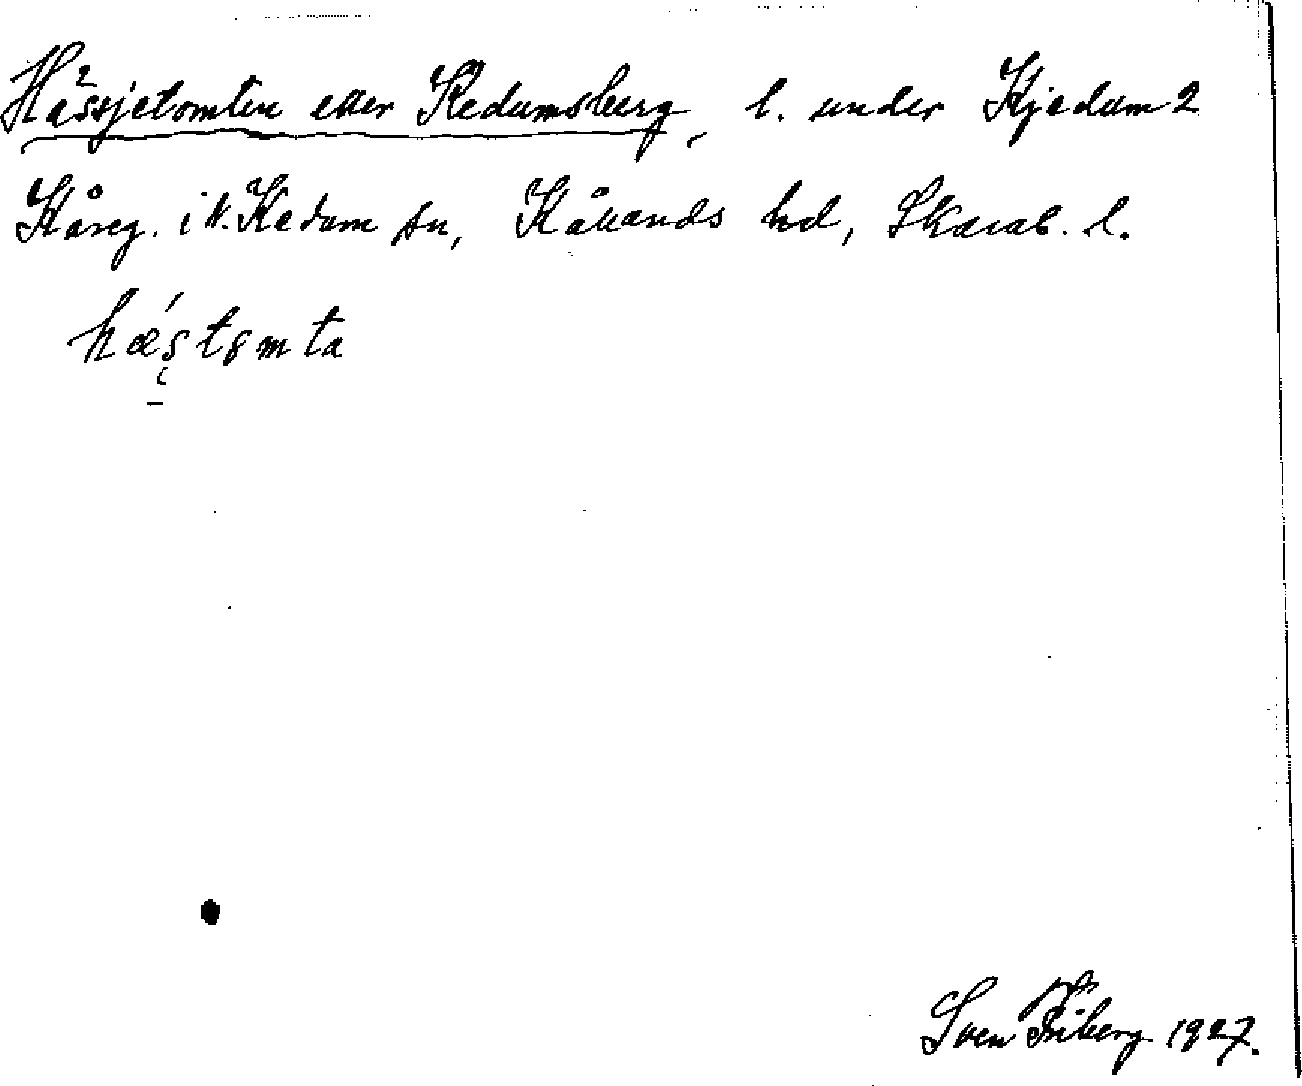 Hässjetomten eller Kedumsberg, l. under Kjedum 2
Kåreg. i N. Kedum sn, Kållands hd, Skarab. l.
hæ´ştɷmta
Sven Friberg 1927.